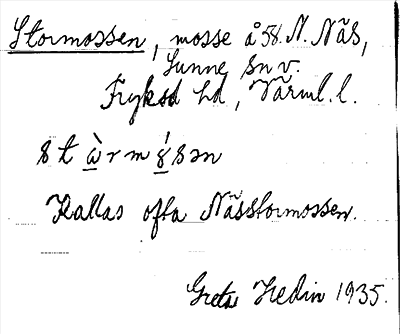 Stormossen, mosse å 58. N. Näs,
Sunne sn v.
Fryksd hd, Värml. l.
stὰrmɣ́sən
Kallas ofta Nässtormossen.
Greta Hedin 1935.